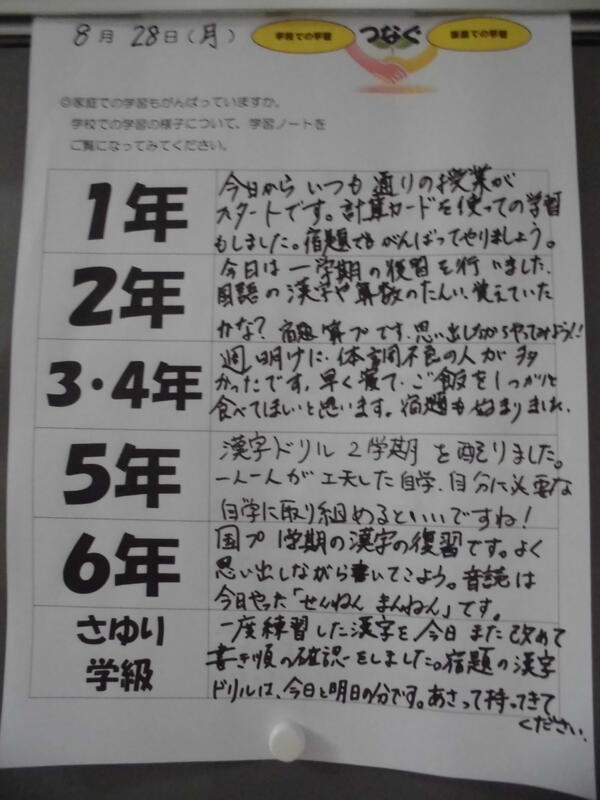 8月28日(月)
学校での学習 つなぐ 家庭での学習
◎家庭での学習もがんばっていますか。
学校での学習の様子について、学習ノートを
ご覧になってみてください。
1年
今日から いつも通りの授業が
スタートです。計算カードを使っての学習
もしました。宿題でも がんばってやりましょう。
2年
今日は一学期の復習を行いました。
国語の漢字や算数のたんい、覚えていた
かな?宿題 算プです。思い出しながらやってみよう!!
3・4年
週明けに、体調不良の人が多
かったです。早く寝て、ご飯をしっかりと
食べてほしいと思います。宿題も始まりました。
5年
漢字ドリル2学期を配りました。
一人一人が工夫した自学、自分に必要な
自学に取り組めるといいですね!
6年
国プ1学期の漢字の復習です。よく
思い出しながら書いてこよう。音読は
今日やった「せんねん まんねん」です。
さゆり
学級
一度練習した漢字を今日また改めて
書き順の確認をしました。宿題の漢字
ドリルは、今日と明日の分です。あさって持ってきて
ください。